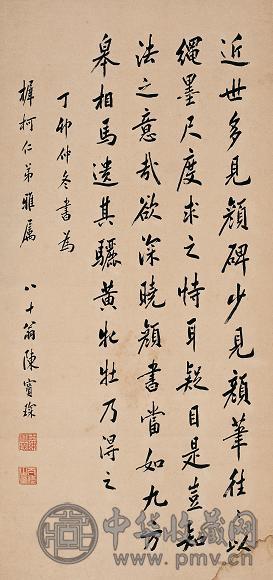 近世多見顏碑少見顏筆往往以
繩墨尺度求之恃耳疑目是豈知
法之意哉欲深曉顏書當如九方
皋相馬遺其驪黃牝牡乃得之
丁卯仲冬書為
樨柯仁弟雅屬
八十翁陳寶琛
中华收藏网
www.pmv.cn